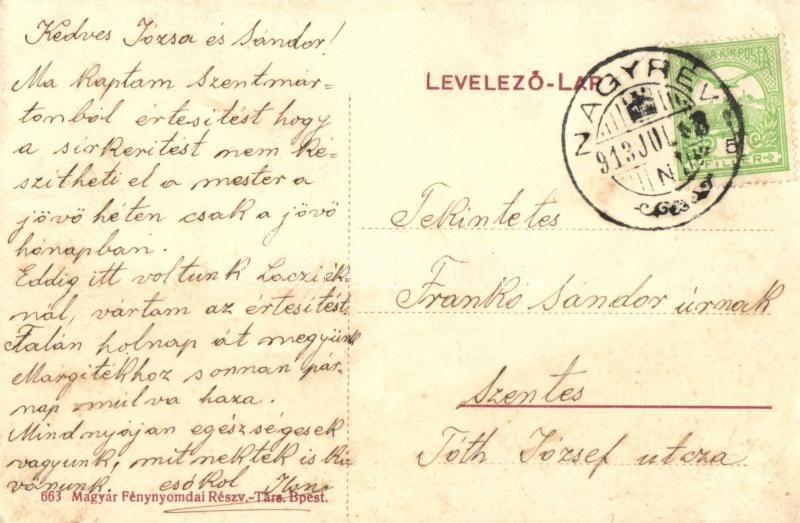 Kedves Józsa és Sándor!
Ma kaptam Szentmár-
tonból értesitést hogy
a sirkeritést nem ké-
szitheti el a mester a
jövö héten csak a jövö
hónapban.
Eddig itt voltunk Lacziék-
nál, vártam az értesitést
Talán holnap át megyünk
Margitékhoz s onnan pár
nap mulva haza.
Mindnyájan egészségesek
vagyunk, mit nektek is ki-
vánunk. csókol
663 Magyar Fénynyomdai Részv.-Társ. Bpest.
LEVELEZŐ-LAP
NAGYRÉV
913 JUL
N 5
MAGYAR KIR. POSTA
FILLÉR
Tekintetes
Frankó Sándor úrnak
Szentes
Tóth József utcza